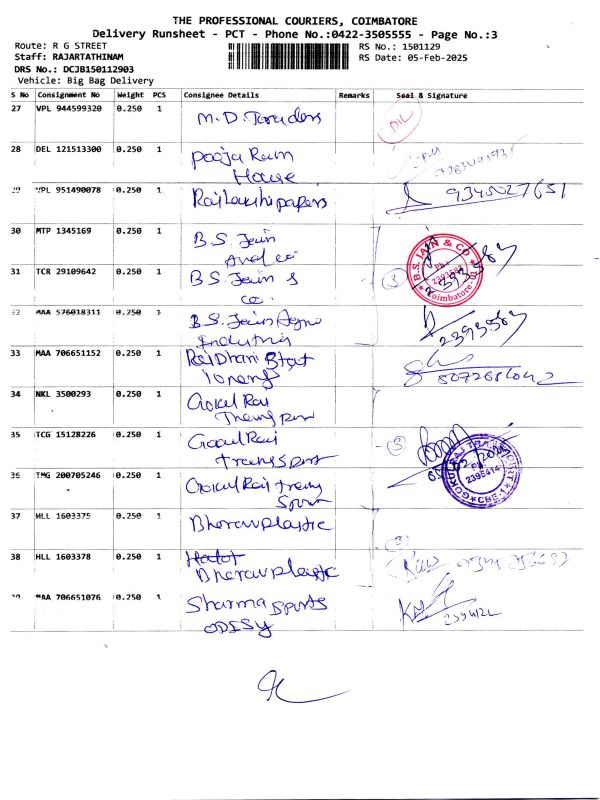 THE PROFESSIONAL COURIERS, COIMBATORE
Delivery Runsheet - PCT - Phone No.:0422-3505555 - Page No.:3
Route: R G STREET RS No.: 1501129
Staff: RAJARTATHINAM RS Date: 05-Feb-2025
DRS No.: DCJB150112903
Vehicle: Big Bag Delivery
S No Consignment No Weight PCS Consignee Details Remarks Seal & Signature
27 VPL 944599320 0.250 1 M.D. Traders
28 DEL 121513300 0.250 1 Pooja Ram
House
29 VPL 951490078 0.250 1 Rajlakshi papers 9345027651
30 MTP 1345169 0.250 1 B.S. Jain
And co
B.S. JAIN & CO
Coimbatore
31 TCR 29109642 0.250 1 B.S. Jain & (3) 2393583
co.
32 MAA 576018311 0.250 1 B.S. Jain Agro 2393583
Industris
33 MAA 706651152 0.250 1 RajDhani
34 NKL 3500293 0.250 1 Gokul Raj
35 TCG 15128226 0.250 1 Gokul Raj (3)
Transport
GOKULRAJ TRANSPORT
CBE-1
36 TMG 200705246 0.250 1 Gokul Raj
37 HLL 1603375 0.250 1 Bherav plastic
38 HLL 1603378 0.250 1
Bherav plastic
39 MAA 706651076 0.250 1 Sharma sports
ODISY